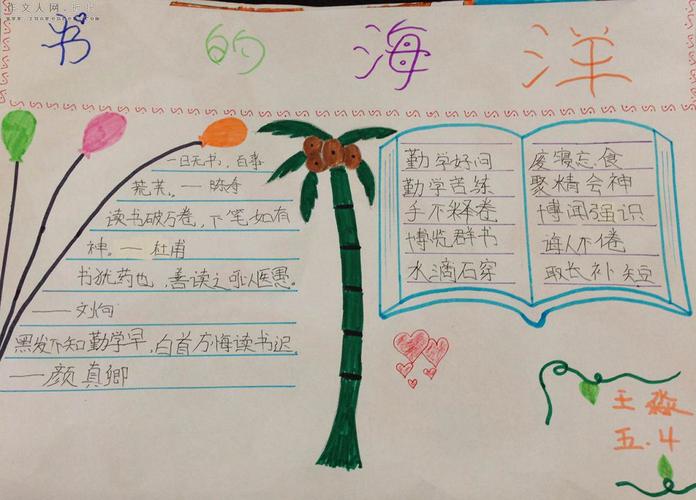 作文人网
书的海洋
一日无书，百事
荒芜。——陈寿
读书破万卷，下笔如有
神。——杜甫
书犹药也，善读之可以医愚。
——刘向
黑发不知勤学早，白首方悔读书迟
——颜真卿
勤学好问
勤学苦练
手不释卷
博览群书
水滴石穿
废寝忘食
聚精会神
博闻强识
诲人不倦
取长补短
王淼
五.4